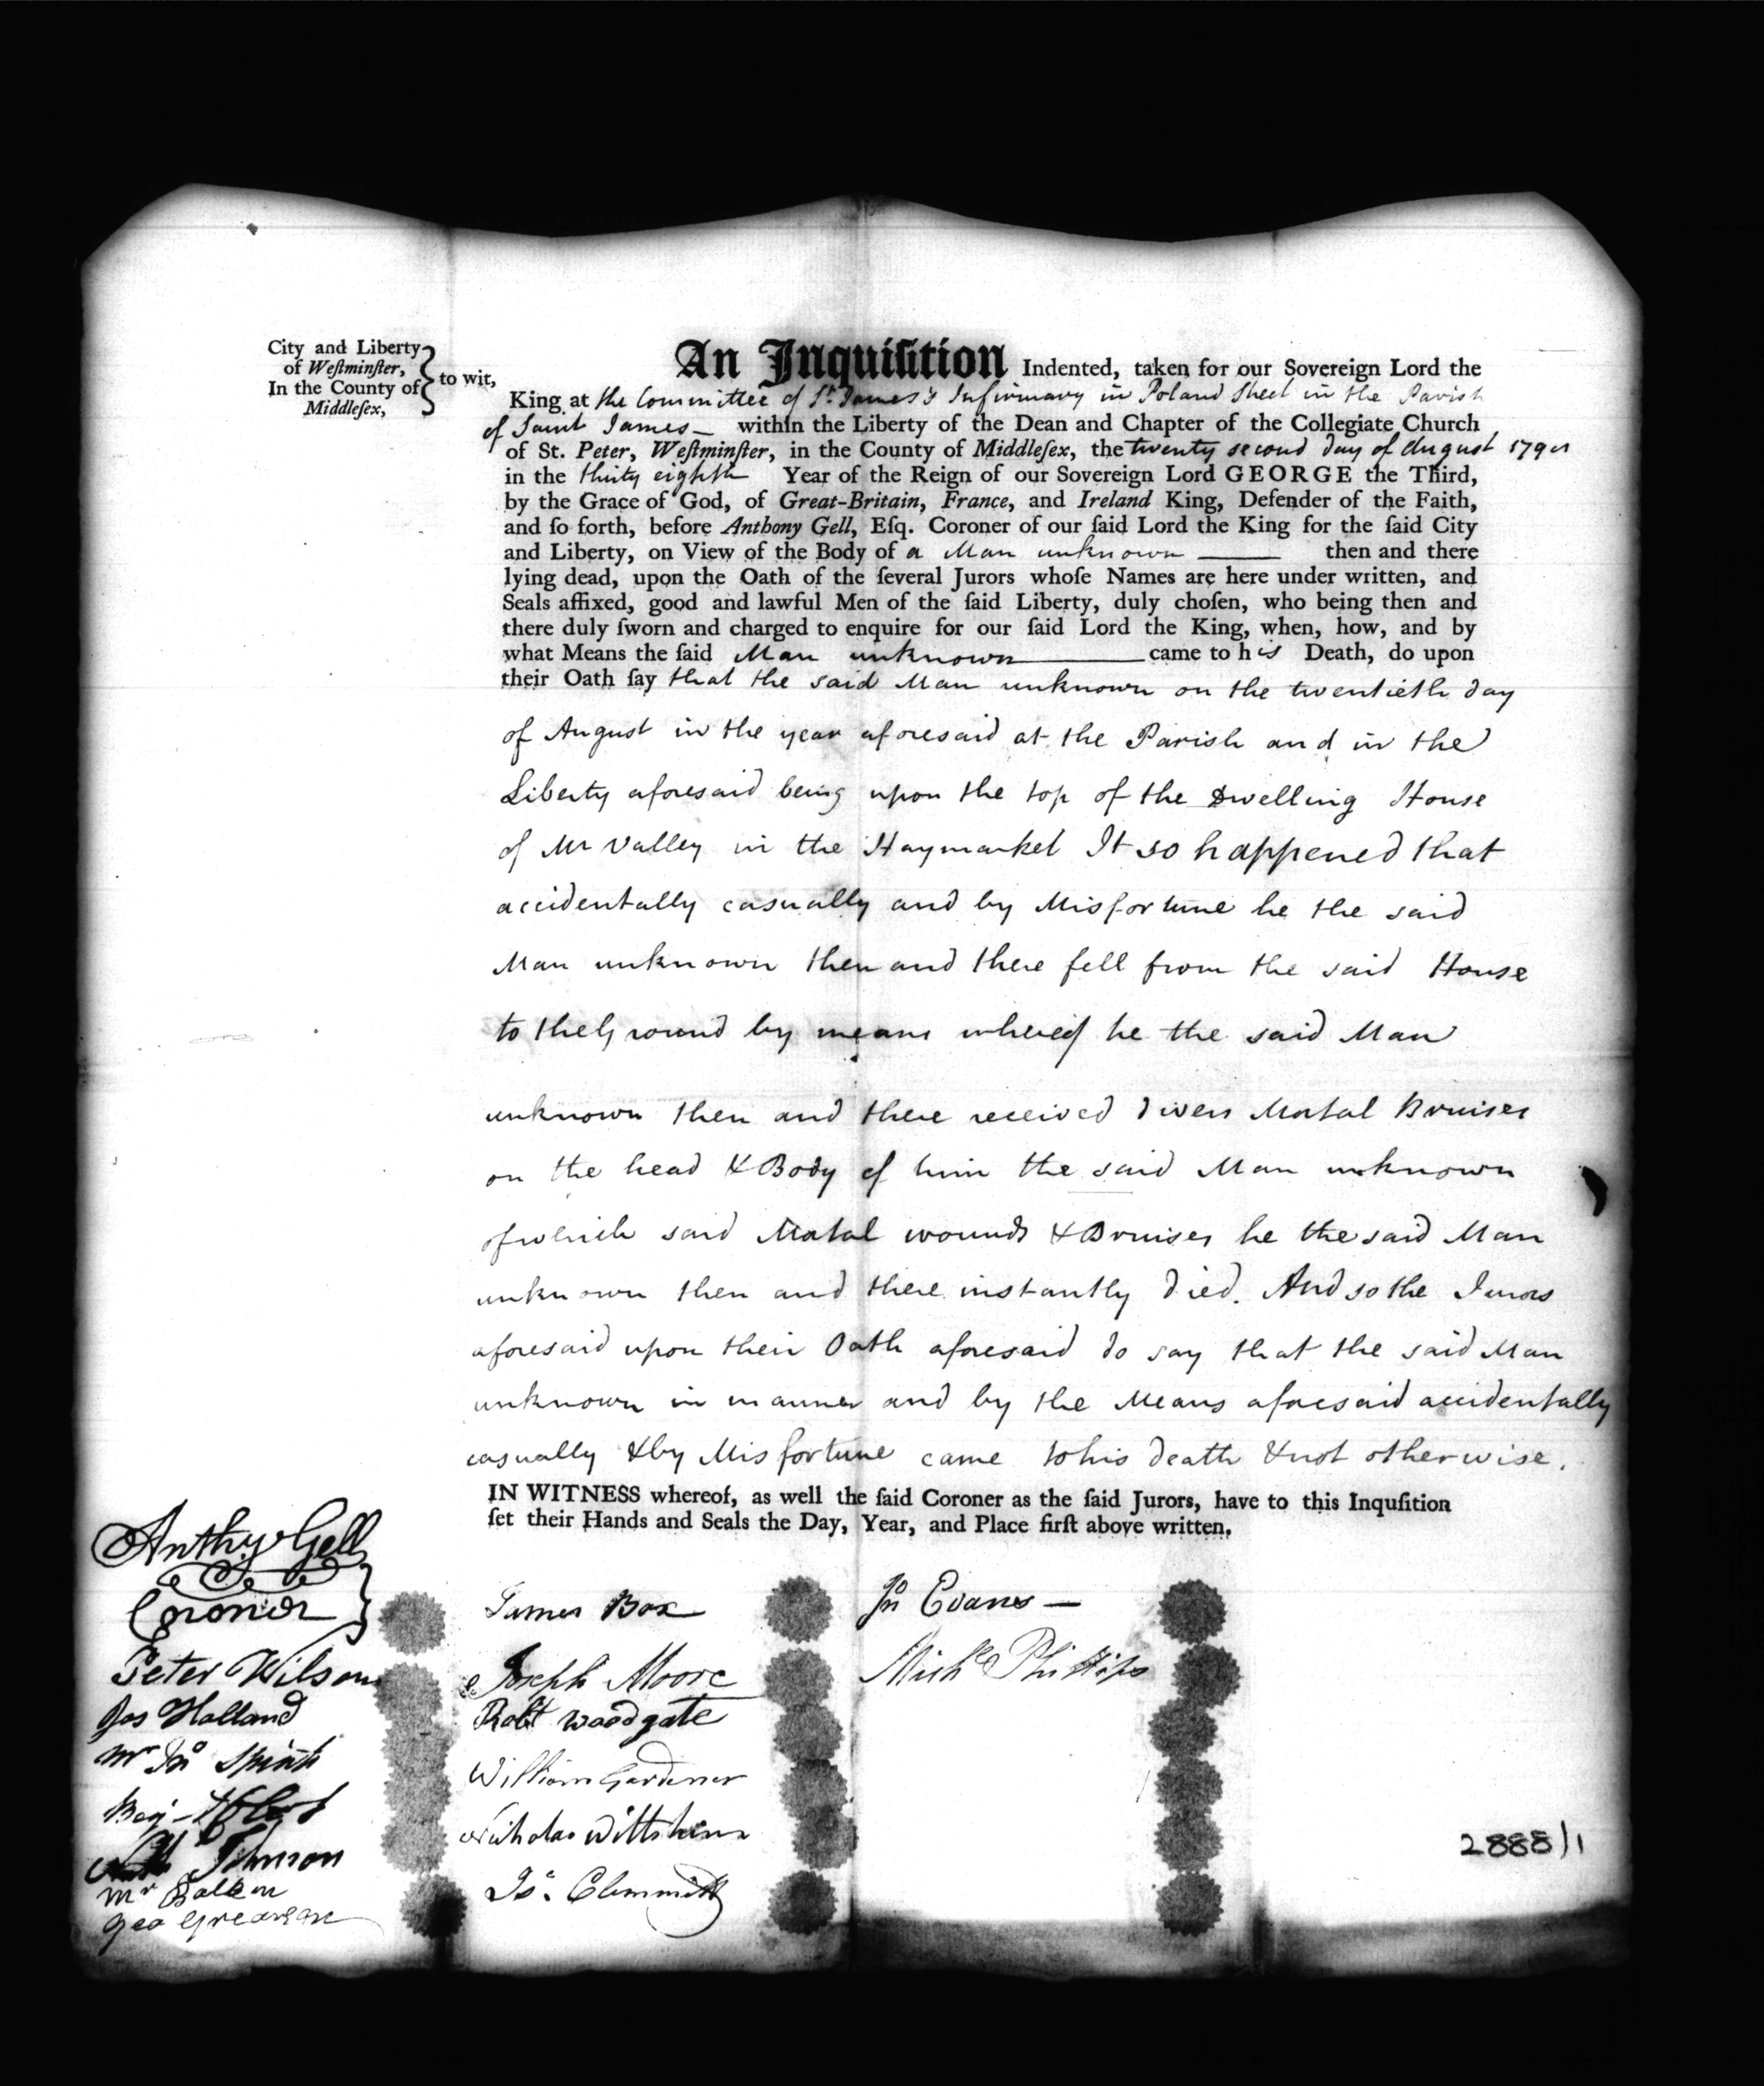 City and Liberty
of Weſtminſter,
In the County of
Middleſex,
to wit,
An Inquiſition Indented, taken for our Sovereign Lord the
King at the Committee of St. James's Infirmary in Poland Street in the Parish
of Saint James — within the Liberty of the Dean and Chapter of the Collegiate Church
of St. Peter, Weſtminſter, in the County of Middleſex, the twenty second day of August
in the thirty eighth Year of the Reign of our Sovereign Lord GEORGE the Third,
by the Grace of God, of Great-Britain, France, and Ireland King, Defender of the Faith,
and ſo forth, before Anthony Gell, Eſq. Coroner of our ſaid Lord the King for the ſaid City
and Liberty, on View of the Body of a Man unknown — then and there
lying dead, upon the Oath of the ſeveral Jurors whoſe Names are here under written, and
Seals affixed, good and lawful Men of the ſaid Liberty, duly choſen, who being then and
there duly ſworn and charged to enquire for our ſaid Lord the King, when, how, and by
what Means the ſaid Man unknown — came to his Death, do upon
their Oath ſay that the said Man unknown on the twentieth day
of August in the year aforesaid at the Parish and in the
Liberty aforesaid being upon the top of the Dwelling House
of Mr Valley in the Haymarket It so happened that
accidentally casually and by Misfortune he the said
Man unknown then and there fell from the said House
to the Ground by means whereof he the said Man
unknown then and there received divers Mortal Bruises
on the head & Body of him the said Man unknown
of which said Mortal wounds & Bruises he the said Man
unknown then and there instantly died. And so the Jurors
aforesaid upon their Oath aforesaid do say that the said Man
unknown in manner and by the Means aforesaid accidentally
casually & by Misfortune came to his death & not otherwise.
IN WITNESS whereof, as well the ſaid Coroner as the ſaid Jurors, have to this Inquſition
ſet their Hands and Seals the Day, Year, and Place firſt above written.
Anthy Gell
Coroner
Peter Wilson
Jas Holland
Mr Jno
Benj
Johnson
Mr
Geo
James Box
Joseph Moore
Robt Woodgate
William Gardener
Nicholas Wiltshire
Js. Clemmitt
Jno Evans —
Michl Phillips
2888/1